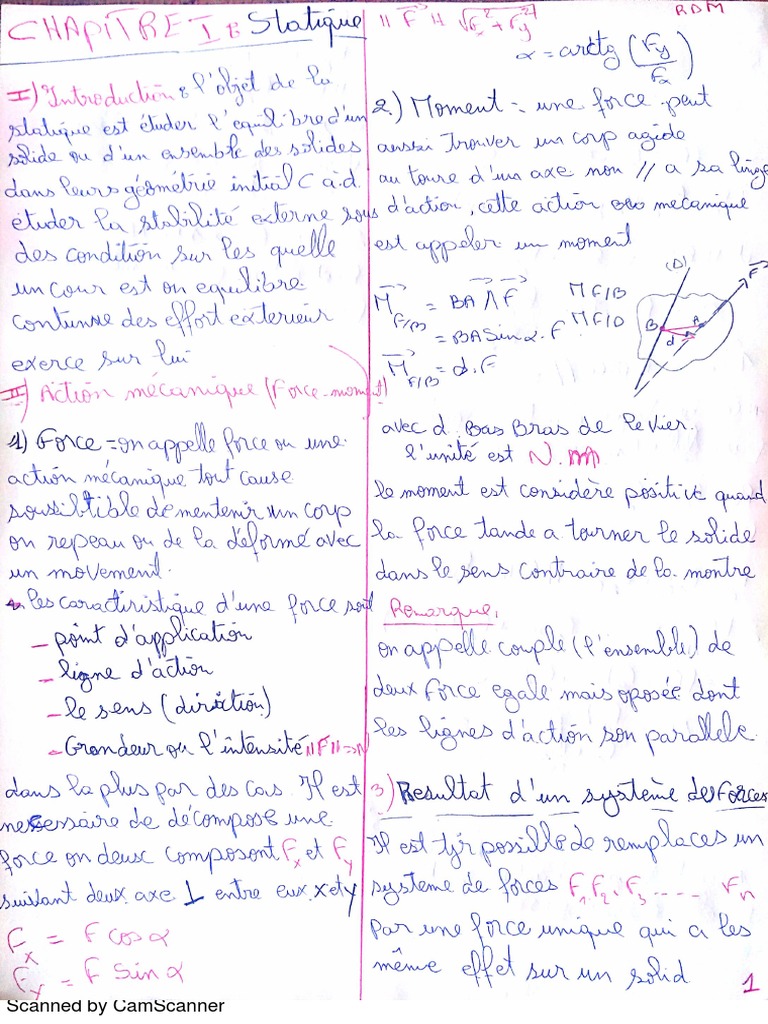 CHAPITRE I : Statique
I) Introduction : l'objet de la
statique est étuder l'equilibre d'un
solide ou d'un ensemble des solides
dans leurs géométrie initial C à.d.
étuder la stabilité externe sous
des condition sur les quelle
un cour est on equilibre
contunue des effort exterieur
exerce sur lui
II) Action mécanique (Force-moment)
1) Force = on appelle force ou une
action mécanique tout cause
sousibtible de mentenir un corp
on repeau ou de la déformé avec
un movement.
les caractiristique d'une force sont
- point d'application
- ligne d'action
- le sens (diréction)
- Grandeur ou l'intensité ||F|| →N
dans la plus par des cas Il est
nessensaire de décomposé une
force on deux composont Fx et Fy
suivant deux axe ⊥ entre eux x et y
Fx = F cos α
Fy = F Sin α
RDM
||F|| = √Fx²+Fy²
α = arctg (Fy/Fx)
2) Moment = une force peut
aussi Trouver un corp agide
au toure d'un axe non // a sa linge
d'action, cette action mecanique
est appeler un moment
M F/B = BA Λ F
M F/B
= BA Sin α . F
M F/D
M F/B = d . F
(D)
F
B
A
d
avec d. Bas Bras de levier.
l'unité est N.m
le moment est considère positive quand
la force tande a tourner le solide
dans le sens contraire de la montre
Remarque,
on appelle couple (l'ensemble) de
deux force egale mais oposée dont
les lignes d'action son parallele
3) Resultat d'un système des Forces
Il est tjr possible de remplaces un
systeme de forces F1, F2, F3 ---- Fn
par une force unique qui a les
même effet sur un solid
1
Scanned by CamScanner